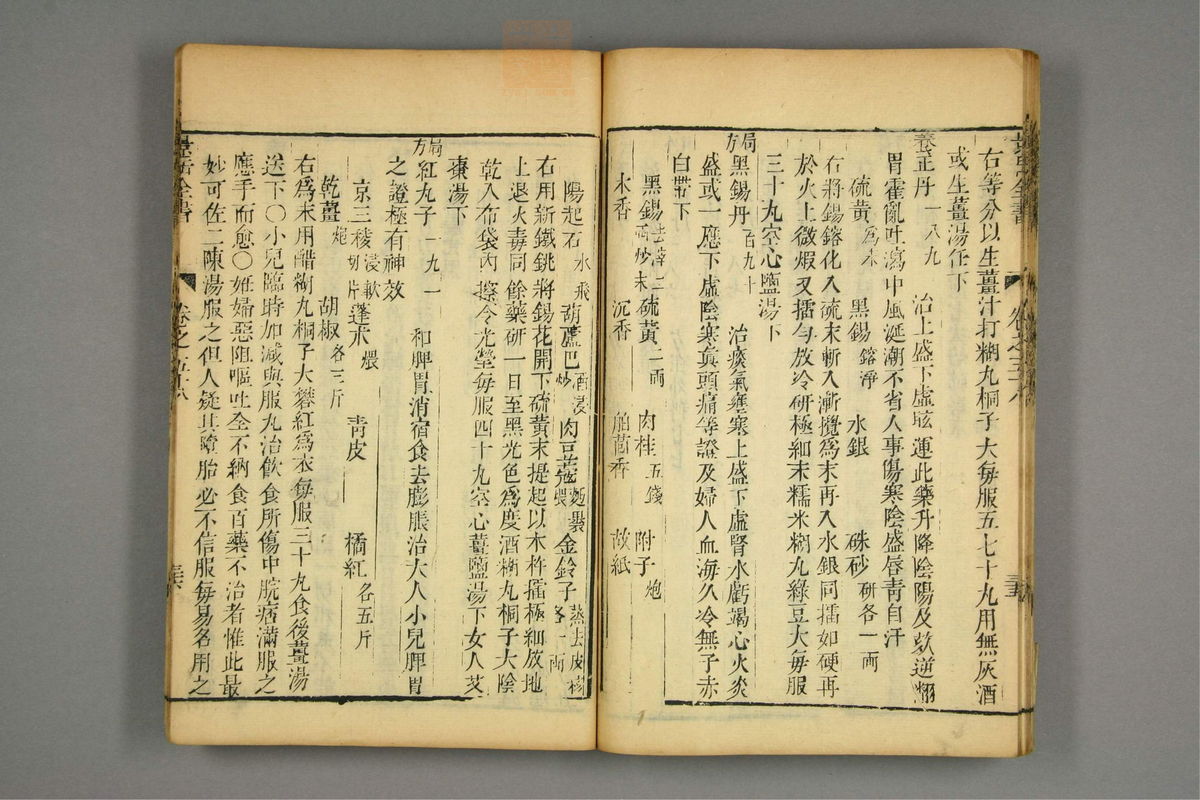 右等分以生薑汁打糊丸桐子大每服五七十丸用無灰酒
或生薑湯任下
養正丹一八九 治上盛下虛眩運此藥升降陰陽及欬逆翻
胃霍亂吐瀉中風涎潮不省人事傷寒陰盛唇青自汗
硫黃爲末 黑錫鎔淨 水銀 硃砂研各一兩
右將錫鎔化入硫末斬入漸攪爲末再入水銀同擂如硬再
於火上微煆又擂勻放冷研極細末糯米糊丸綠豆大每服
三十丸空心鹽湯下
局方黑錫丹百九十 治痰氣壅塞上盛下虛腎水虧竭心火炎
盛或一應下虛陰寒眞頭痛等證及婦人血海久冷無子赤
白帶下
黑錫去滓二兩炒末 硫黃二兩 肉桂五錢 附子炮
木香 沉香 舶茴香 故紙
景岳全書 卷之五十八 三五
陽起石水飛 葫蘆巴酒浸炒 肉豆蔻麪裹煨 金鈴子蒸去皮核各一兩
右用新鐵銚將錫花開下硫黃末提起以木杵擂極細放地
上退火毒同餘藥研一日至黑光色爲度酒糊丸桐子大陰
乾入布袋內擦令光瑩每服四十九空心薑鹽湯下女人艾
棗湯下
局方紅丸子一九一 和脾胃消宿食去膨脹治大人小兒脾胃
之證極有神效
京三稜浸軟切片 蓬朮煨 青皮 橘紅各五斤
乾薑炮 胡椒各三斤
右爲末用醋糊丸桐子大礬紅爲衣每服三十丸食後薑湯
送下〇小兒臨時加減與服丸治飲食所傷中脘痞滿服之
應手而愈〇姙婦惡阻嘔吐全不納食百藥不治者惟此最
妙可佐二陳湯服之但人疑其墮胎必不信服每易名用之
景岳全書 卷之五十八 三六